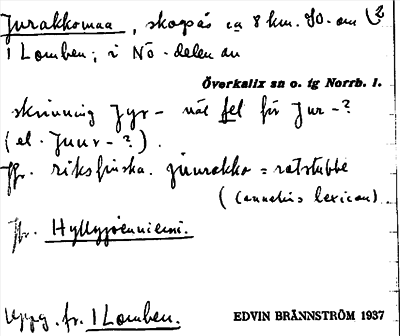 Jurakkomaa, skogås ca 8 km. SO. om
1 Lomben; i NO-delen av
Överkalix sn o. tg Norrb. l.
skrivning Jyr- väl fel för Jur-?
(el. Juur-?).
Jfr. riksfinska. juurakko = rotstubbe
(Cannelins lexicon)
Jfr. Hyllyjoenniemi.
Uppg. fr. 1 Lomben.
EDVIN BRÄNNSTRÖM 1937